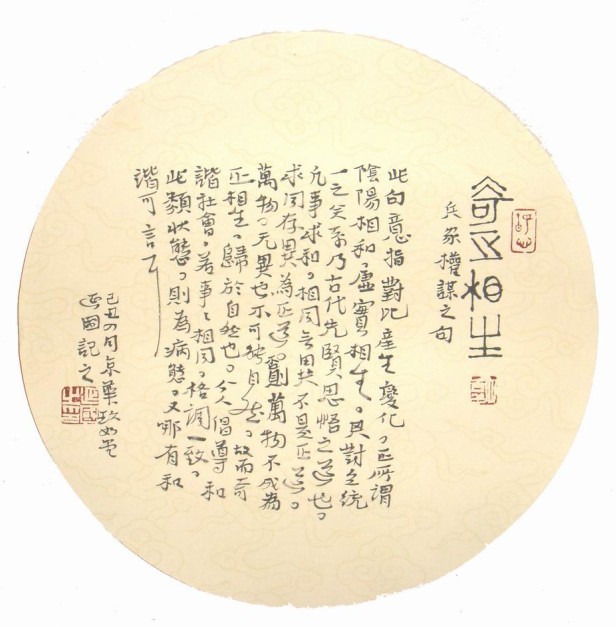 奇正相生
兵家權謀之句
此句意指對比產生變化。正所謂
陰陽相和，虛實相生。與對立統
一之关系乃古代先賢思悟之道也。
凡事求和。相同
求同存異為正道。萬物不成為
萬物。无異也不可獨自
正相生。歸於自然也。今人倡導和
諧社會。若事事相同。格調一致。
此類狀態。則為病態。又哪有和
諧可言
己丑
正國記之